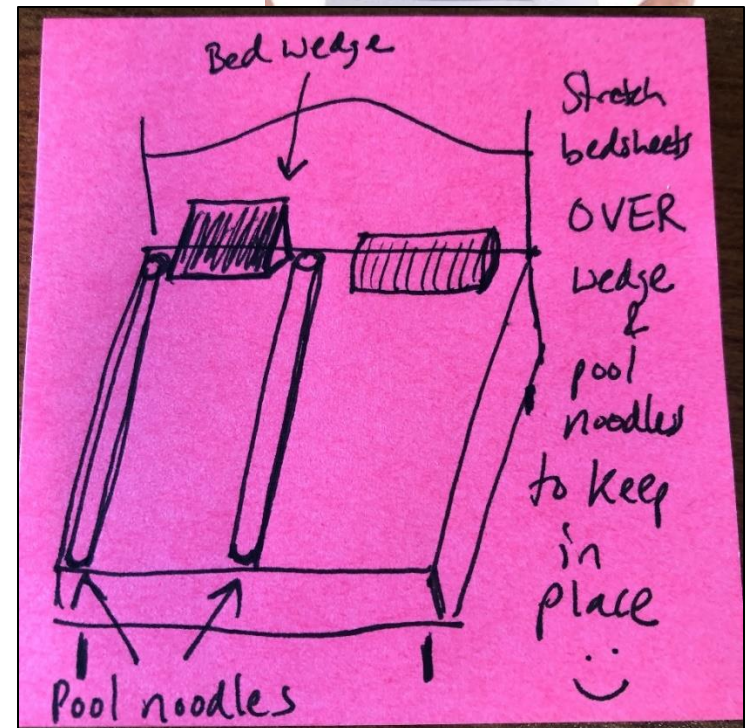 Bed wedge
Stretch
bedsheets
OVER
wedge
&
pool
noodles
to keep
in
place
Pool noodles